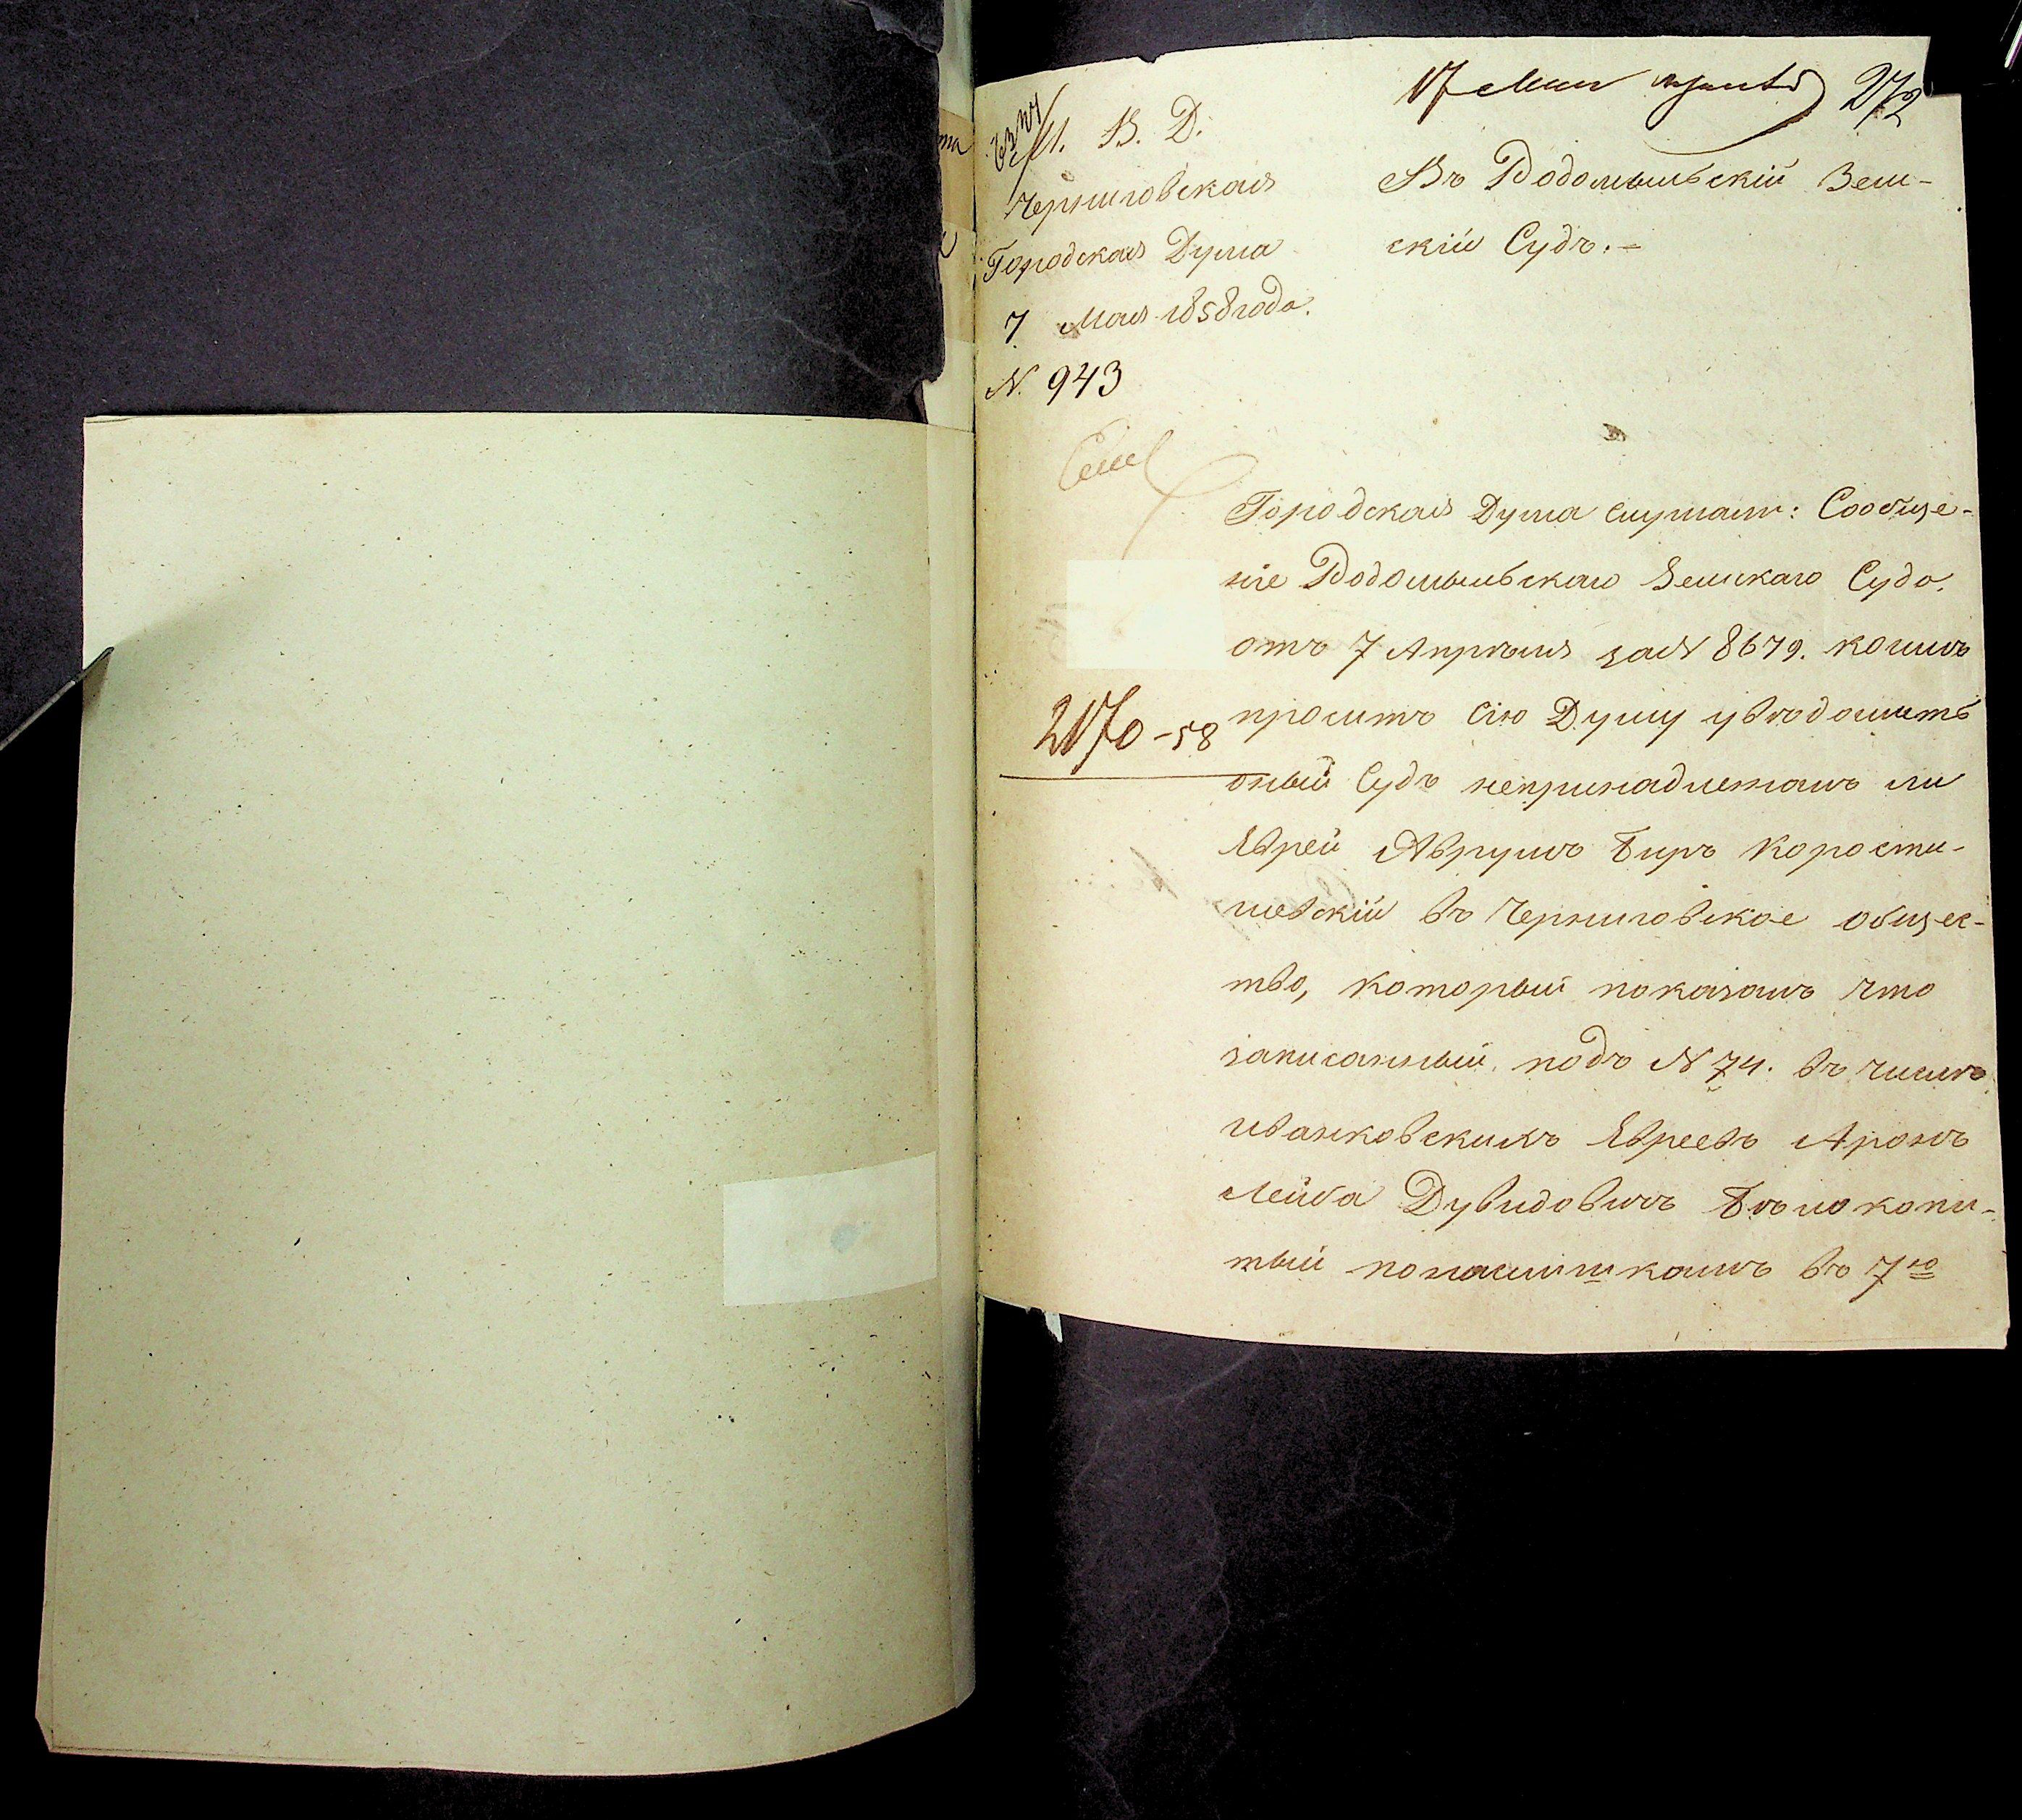 17 Мая 272
М. В. Д.
Черниговская
Городская Дума
7 Мая 1858 года.
N. 943
Въ Радомысльскій Зем-
скій Судъ. –
Городская Дума слушали: Сообще-
ніе Радомысльскаго Земскаго Суда
отъ 7 Апрѣля за N 8679. коимъ
проситъ сію Думу увѣдомить
оный Судъ непринадлежалъ ли
Еврей Аврумъ Биръ Корости-
шевскій въ Черниговское общес-
тво, который показалъ что
записанный подъ N 74. въ числѣ
иванковскихъ Евреевъ Аронъ
Лейба Дувидовичъ Бѣлокопи-
тый въ 7ю
2170-58